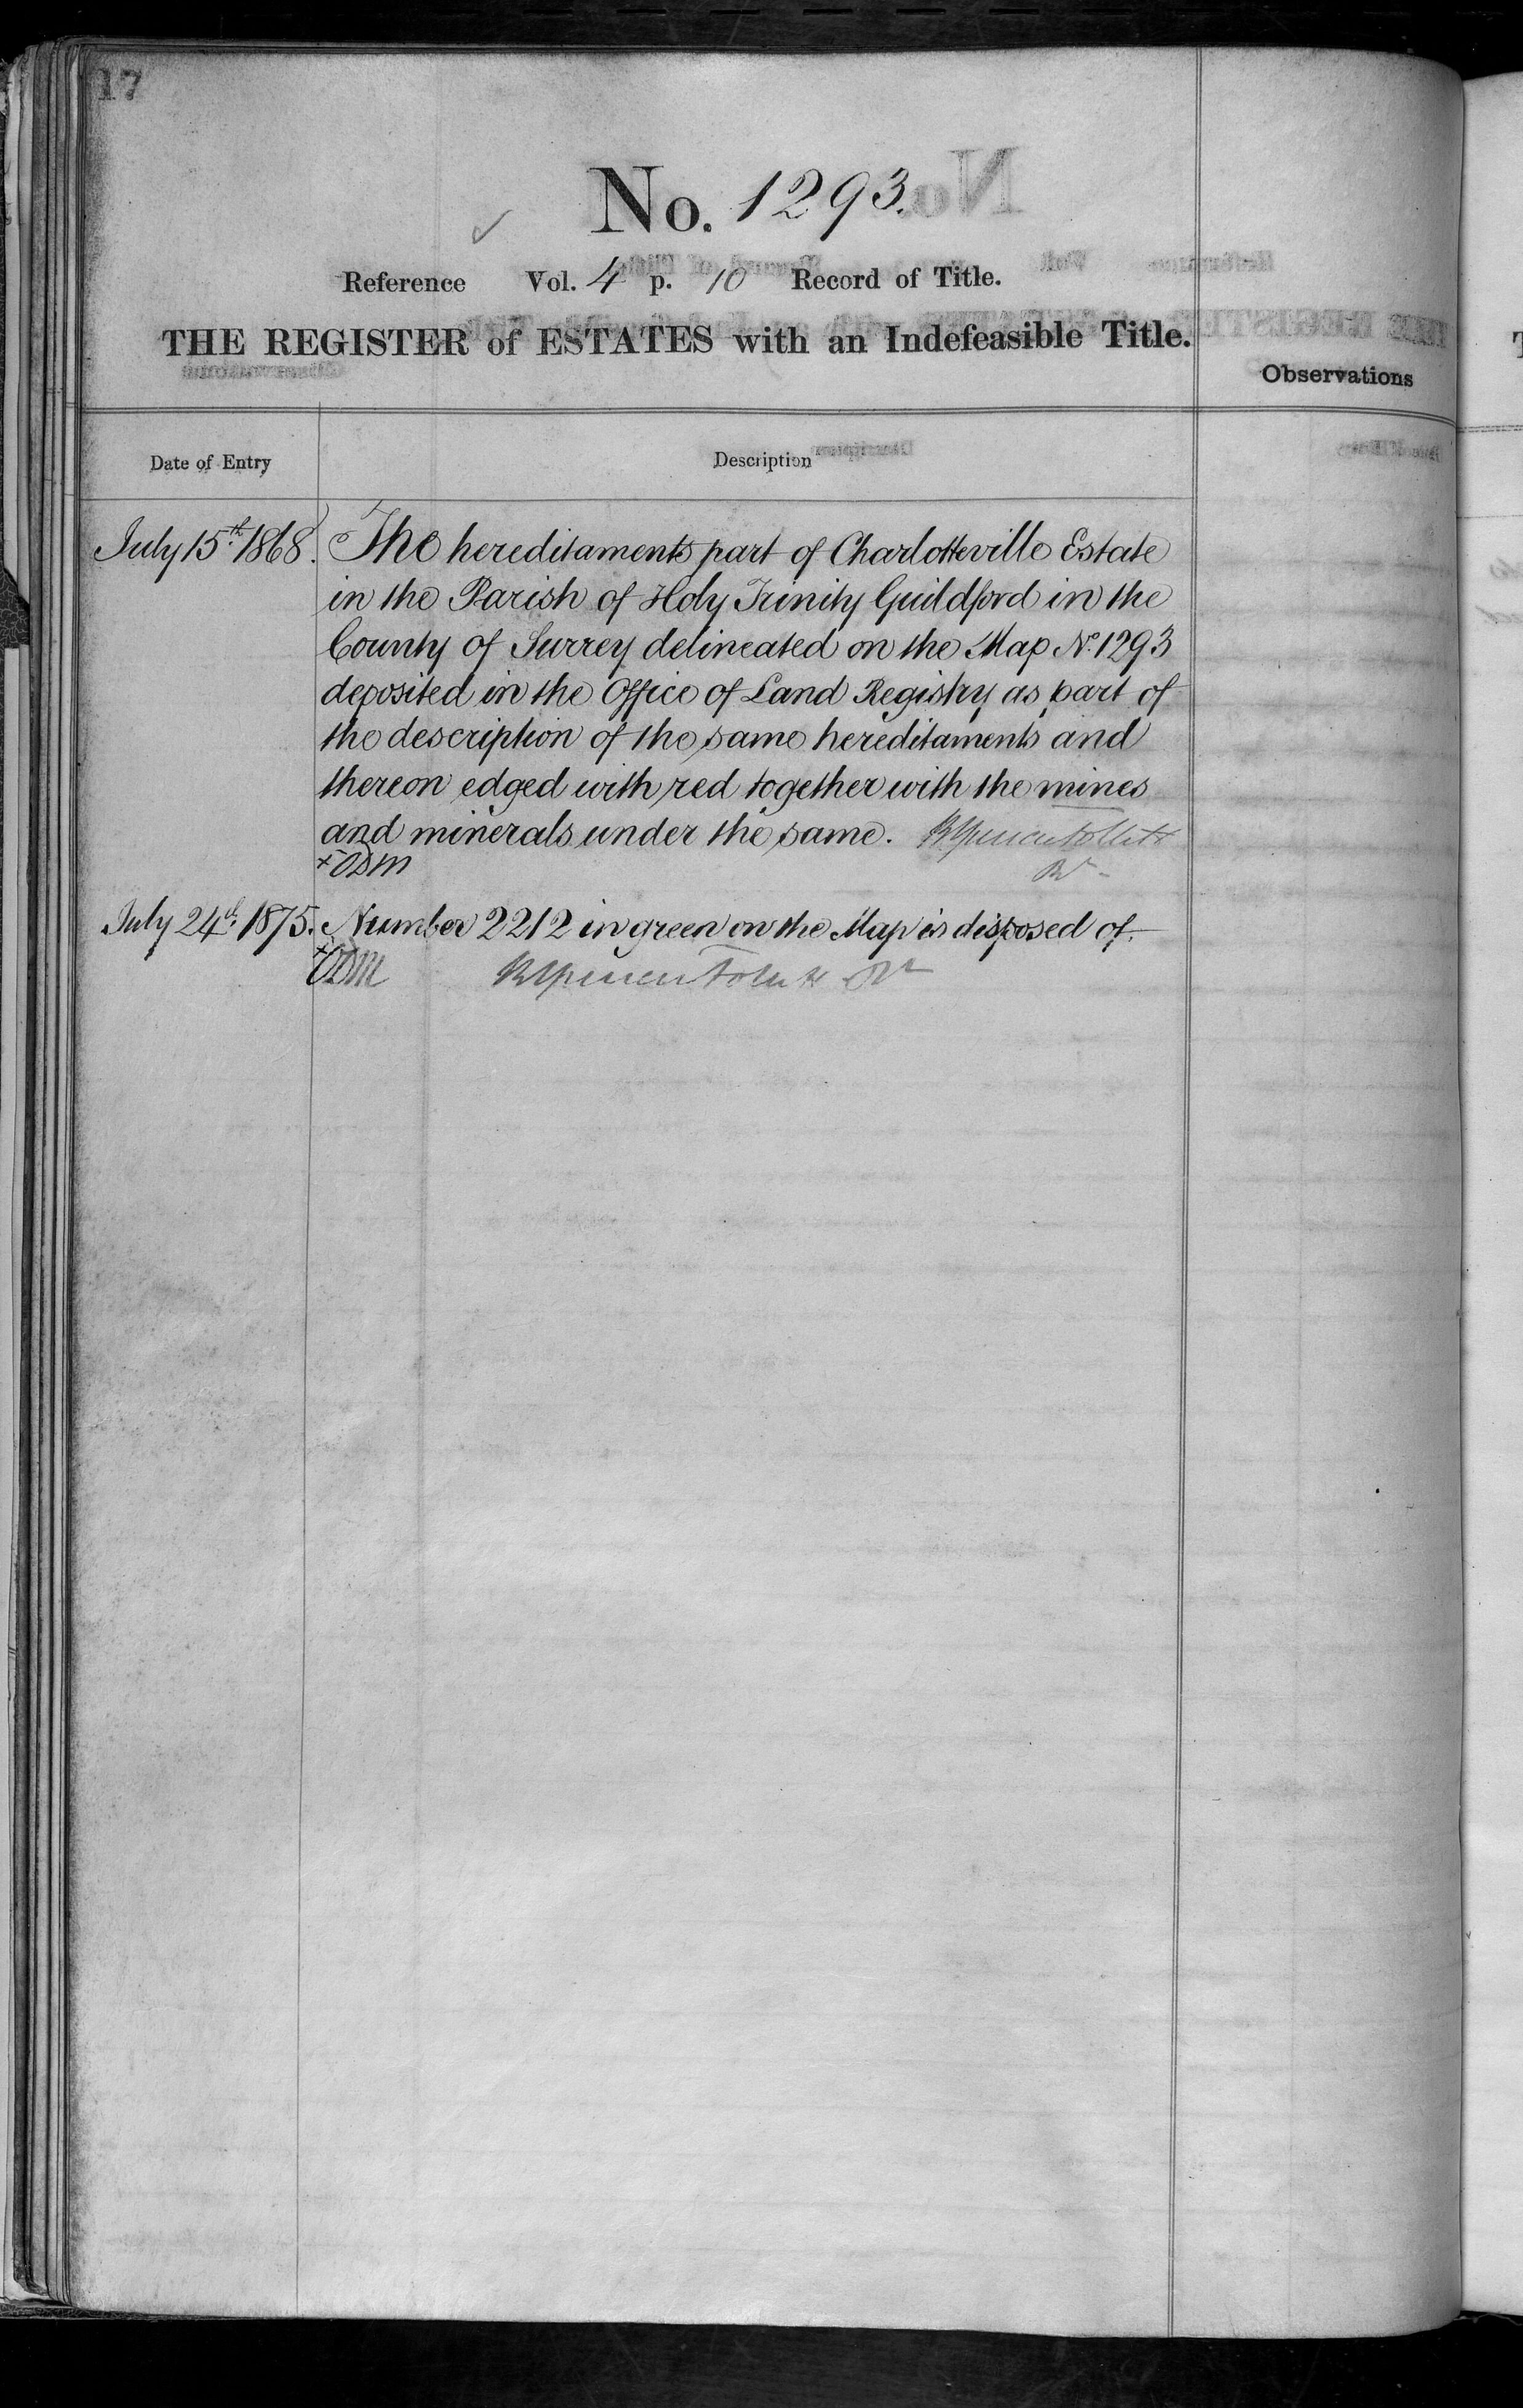 17
No. 1293.
Reference Vol. 4 p. 10 Record of Title.
THE REGISTER of ESTATES with an Indefeasible Title.
Observations
Date of Entry
Description
July 15th 1868. The hereditaments part of Charlotteville Estate
in the Parish of Holy Trinity Guildford in the
County of Surrey delineated on the Map No. 1293
deposited in the Office of Land Registry as part of
the description of the same hereditaments and
thereon edged with red together with the mines
and minerals under the same.
July 24th 1875. Number 2212 in green on the Map is disposed of.